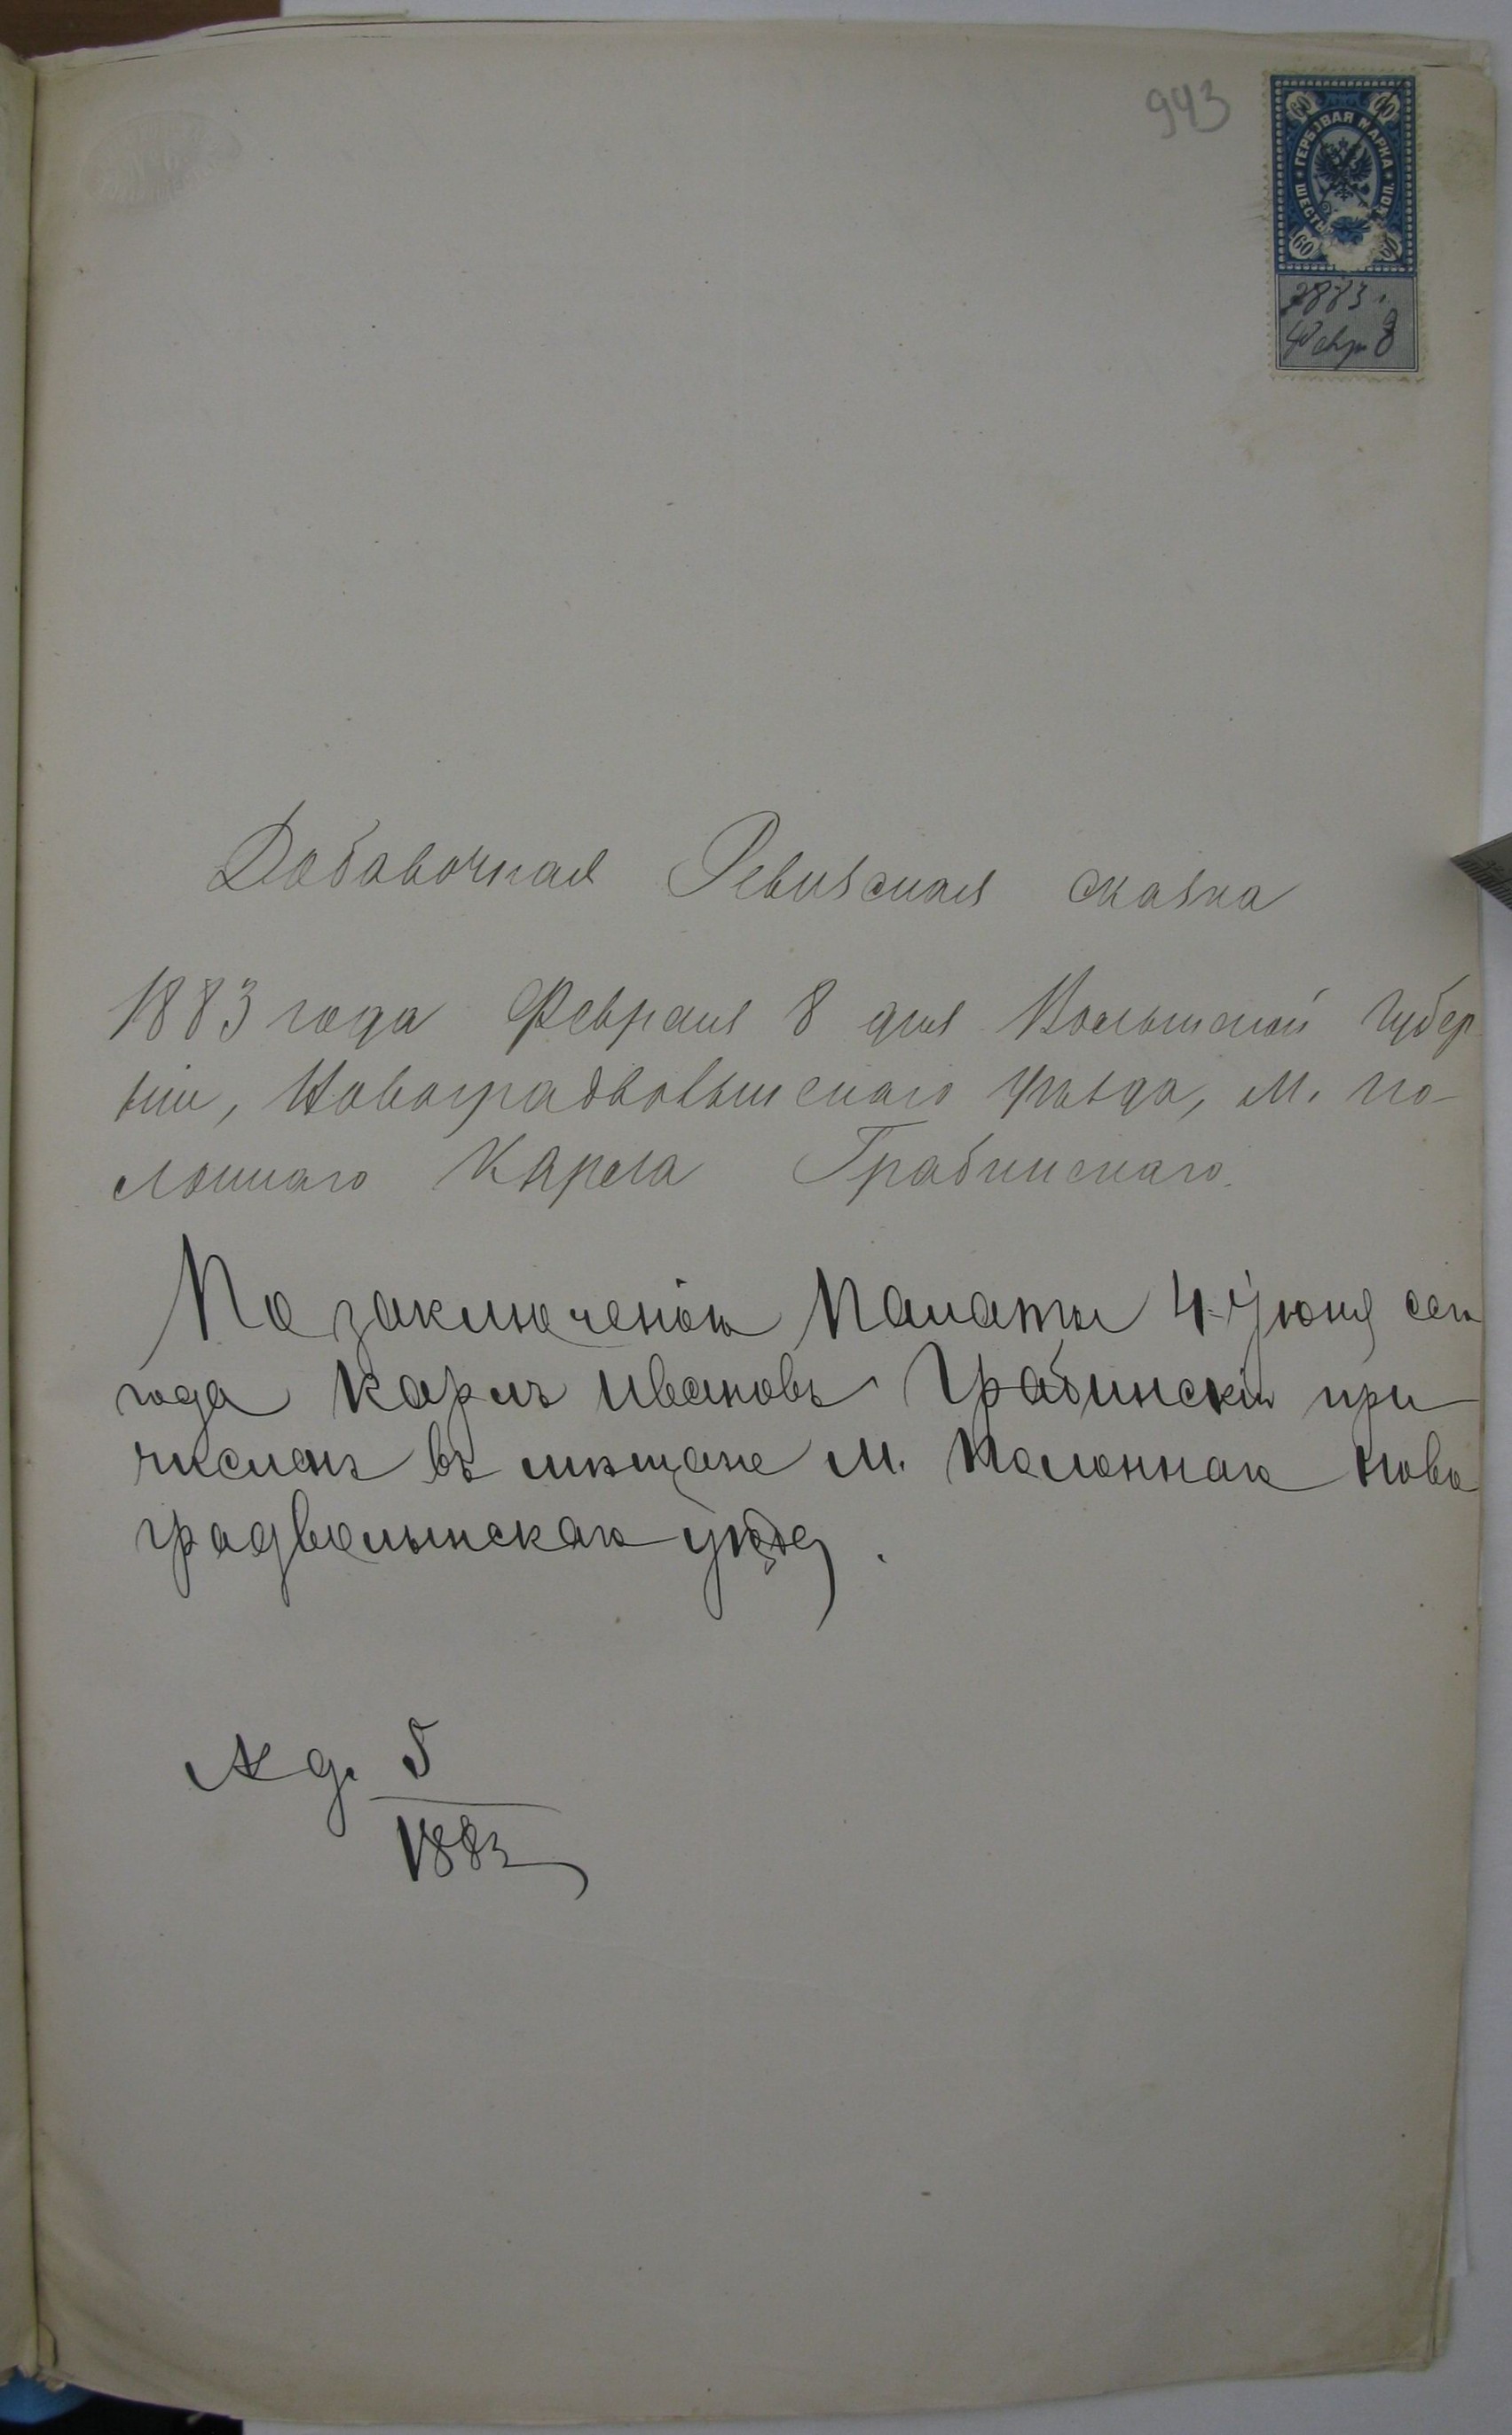 943
60 60
ГЕРБОВАЯ МАРКА
ШЕСТЬ КОП.
60 60
1883 г.
Февр 8
Добавочная Ревизская сказка
1883 года Февраля 8 дня Волынской Губер
ніи, Новоградволынскаго Уѣзда, м. По-
лоннаго Карла Грабинскаго.
По заключенію Палаты 4 Іюня сего
года Карлъ Ивановъ Грабинскій при
численъ въ мѣщане м. Полоннаго Ново
градволынскаго уѣзда.
№ д. 5
1883